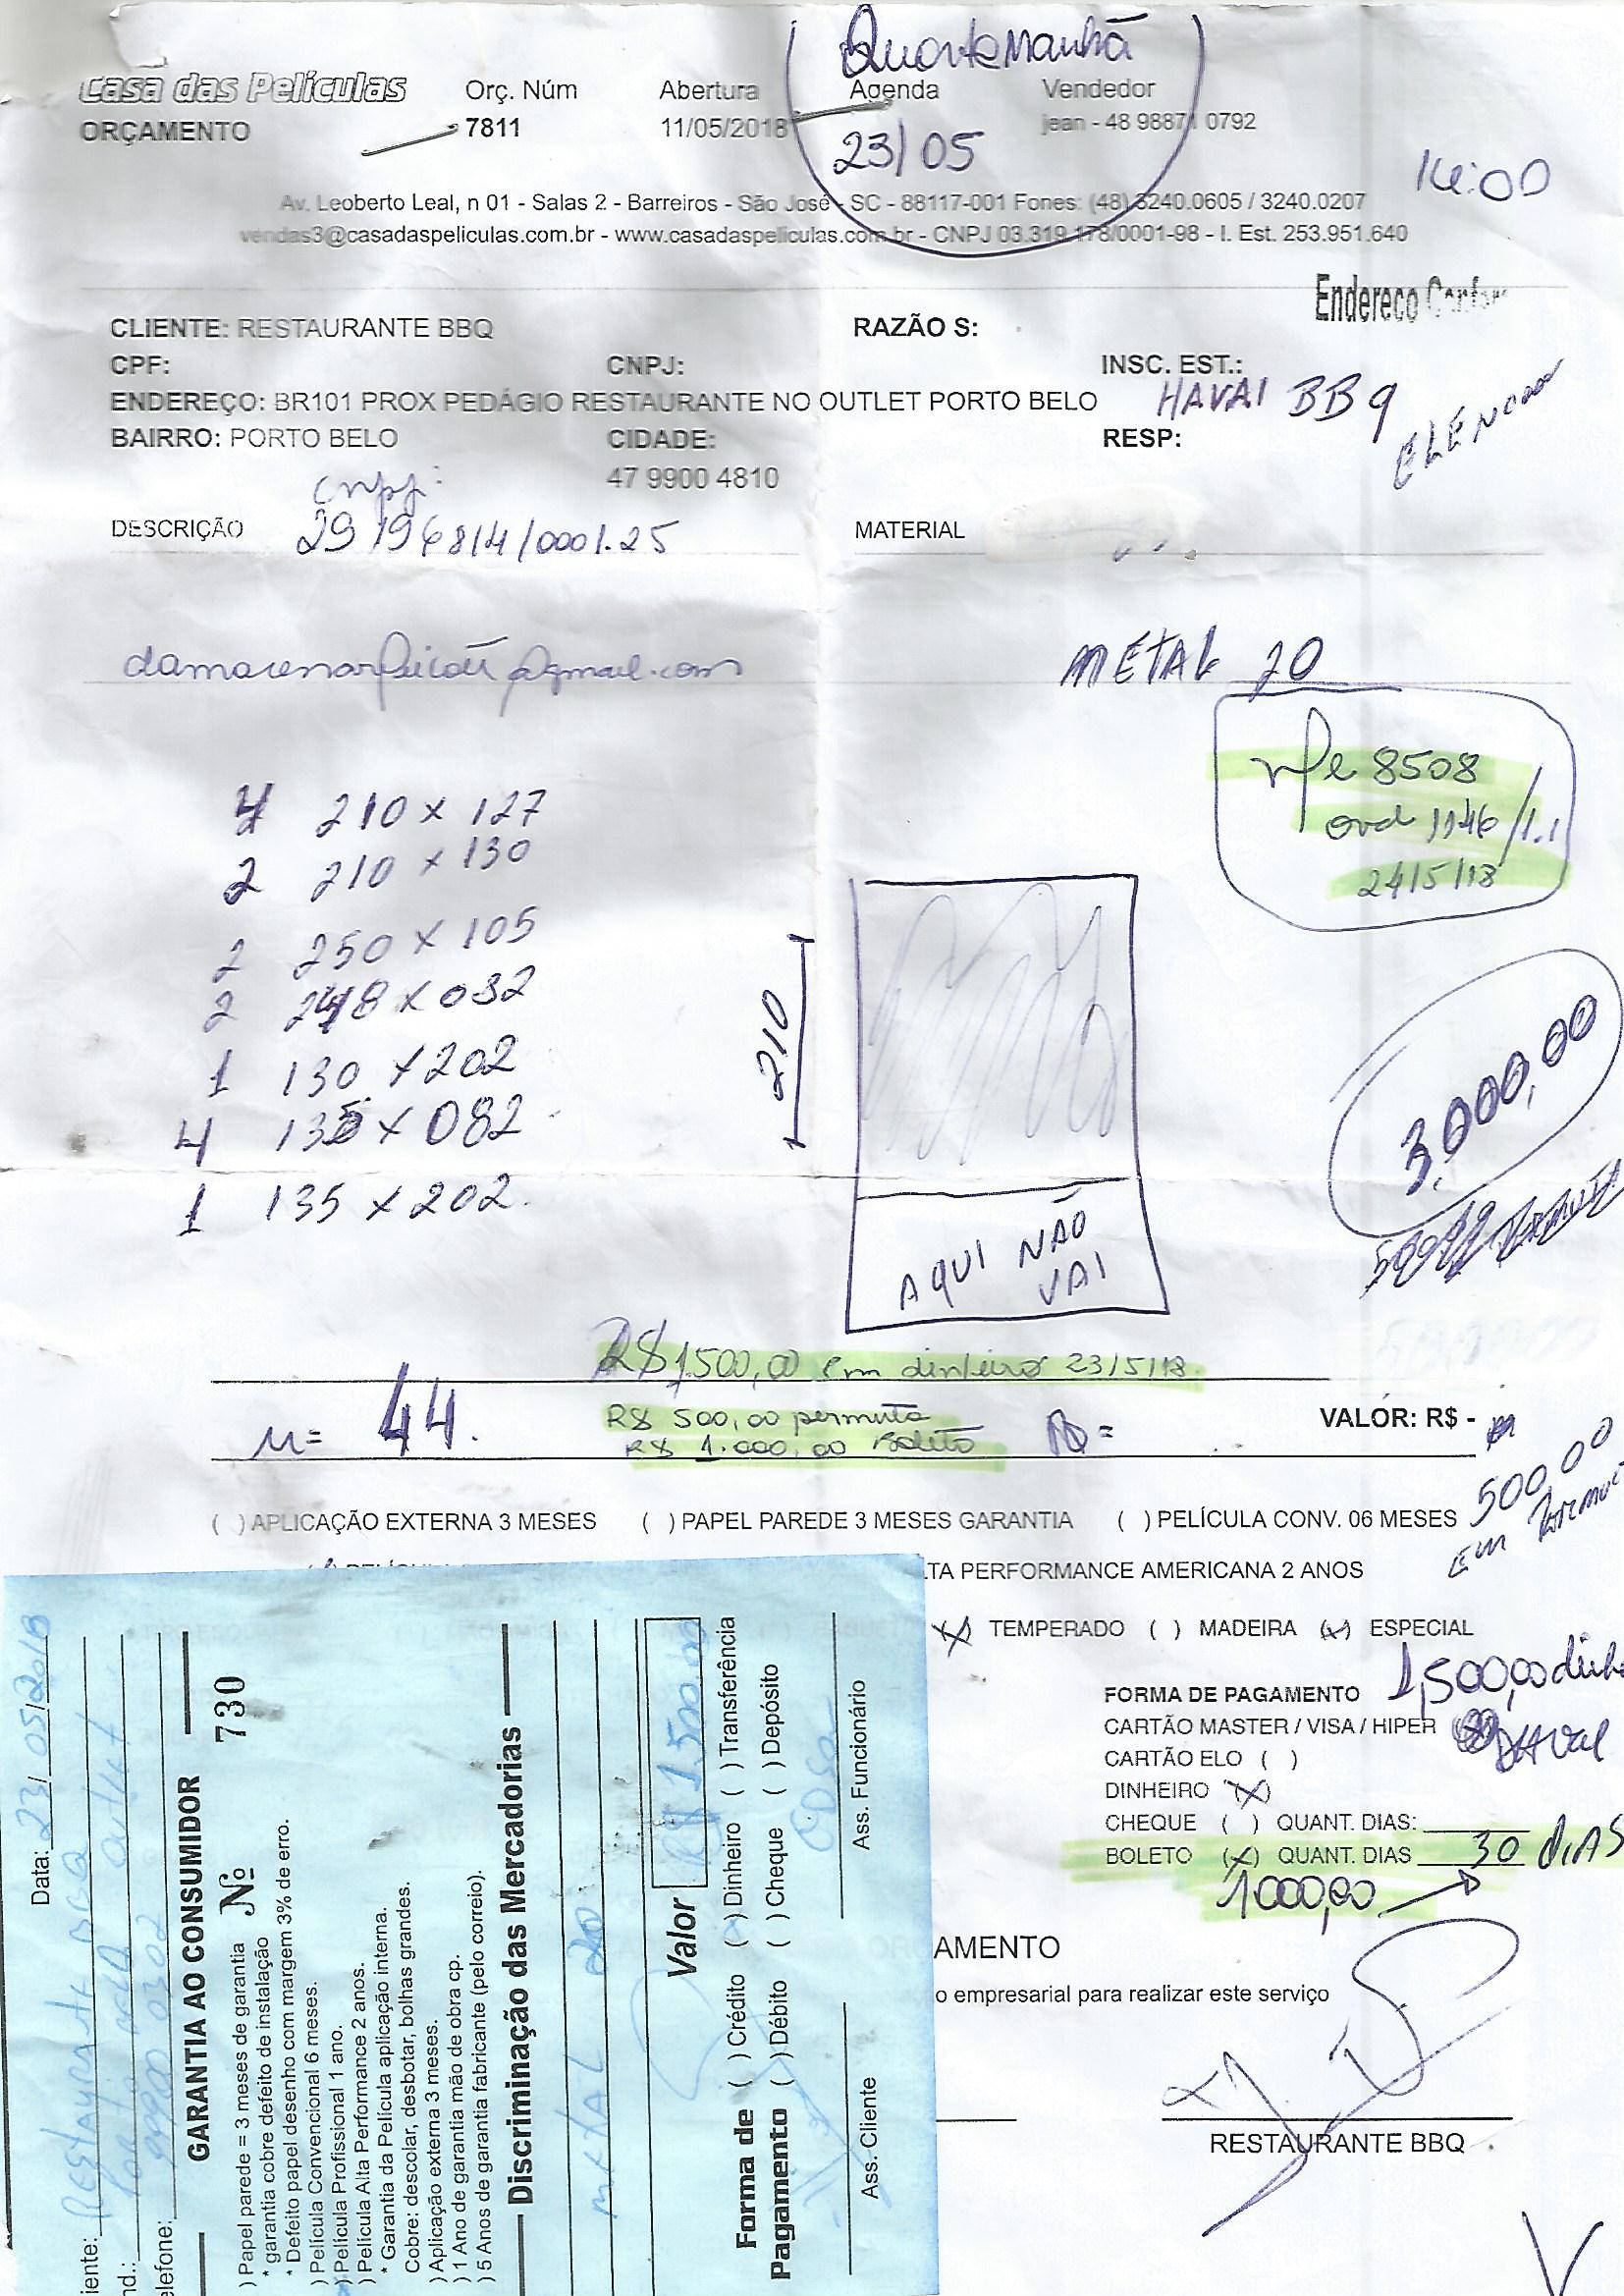 Quarta Manhã
Casa das Películas Orç. Núm Abertura Agenda Vendedor
ORÇAMENTO 7811 11/05/2018 23/05 jean - 48 98871 0792
14:00
Av. Leoberto Leal, n 01 - Salas 2 - Barreiros - São José - SC - 88117-001 Fones: (48) 3240.0605 / 3240.0207
vendas3@casadaspeliculas.com.br - www.casadaspeliculas.com.br - CNPJ 03.319.178/0001-98 - I. Est. 253.951.640
Endereco
CLIENTE: RESTAURANTE BBQ RAZÃO S:
CPF: CNPJ: INSC. EST.:
ENDEREÇO: BR101 PROX PEDÁGIO RESTAURANTE NO OUTLET PORTO BELO HAVAI BBq
BAIRRO: PORTO BELO CIDADE: RESP:
47 9900 4810
cnpj:
DESCRIÇÃO 29196814/0001.25 MATERIAL
METAL 20
nfe 8508
ord 1146/1.1
24/5/18
4 210 x 127
2 210 x 130
2 250 x 105
2 248 x 082
1 130 x 202
4 135 x 082
1 135 x 202.
210
AQUI NÃO
VAI
3.000,00
R$ 1.500,00 em dinheiro 23/5/18.
M= 44.
R$ 500,00 permuta
R$ 1.000,00 Boleto
VALOR: R$ -
500,00
Em
( ) APLICAÇÃO EXTERNA 3 MESES ( ) PAPEL PAREDE 3 MESES GARANTIA ( ) PELÍCULA CONV. 06 MESES
LTA PERFORMANCE AMERICANA 2 ANOS
(x) TEMPERADO ( ) MADEIRA (x) ESPECIAL
FORMA DE PAGAMENTO 1,500,00
CARTÃO MASTER / VISA / HIPER
CARTÃO ELO ( )
DINHEIRO (x)
CHEQUE ( ) QUANT. DIAS:
BOLETO (x) QUANT. DIAS 30 DIAS
1000,00
AMENTO
o empresarial para realizar este serviço
RESTAURANTE BBQ
Data: 23/05/2018
iente: Restaurante BBQ
nd.: Porto Belo outlet
elefone:
GARANTIA AO CONSUMIDOR Nº 730
) Papel parede = 3 meses de garantia
* garantia cobre defeito de instalação
* Defeito papel desenho com margem 3% de erro.
) Película Convencional 6 meses.
) Película Profissional 1 ano.
) Película Alta Performance 2 anos.
* Garantia da Película aplicação interna.
Cobre: descolar, desbotar, bolhas grandes.
) Aplicação externa 3 meses.
) 1 Ano de garantia mão de obra cp.
) 5 Anos de garantia fabricante (pelo correio).
Discriminação das Mercadorias
METAL 20
Valor R$ 1.500,00
Forma de Pagamento
( ) Crédito ( ) Dinheiro ( ) Transferência
( ) Débito ( ) Cheque ( ) Depósito
Ass. Cliente Ass. Funcionário